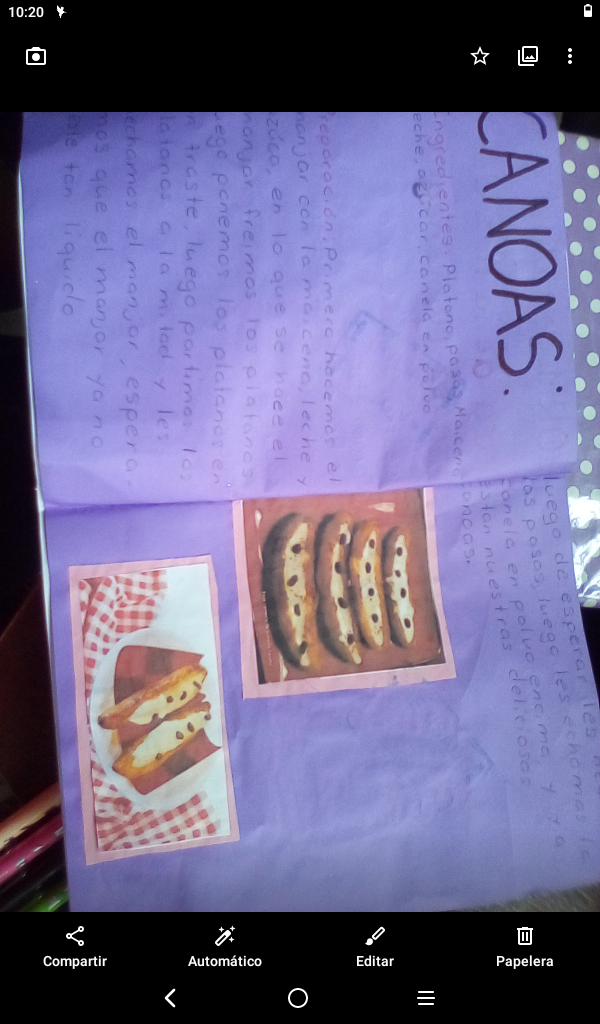 10:20
CANOAS:
Ingredientes: Platano, pasas, Maicena,
leche, azúcar, canela en polvo
reparación: Primero hacemos el
manjar con la maicena, leche y
azúca, en lo que se hace el
manjar freimos los platanos
uego ponemos los platanos en
n traste, luego partimos los
latanos a la mitad y les
echamos el manjar, espera-
mos que el manjar ya no
este tan liquido
luego de esperar les
las pasas, luego les echamos la
canela en polvo encima, y ya
estan nuestras deliciosas
canoas.
Compartir
Automático
Editar
Papelera